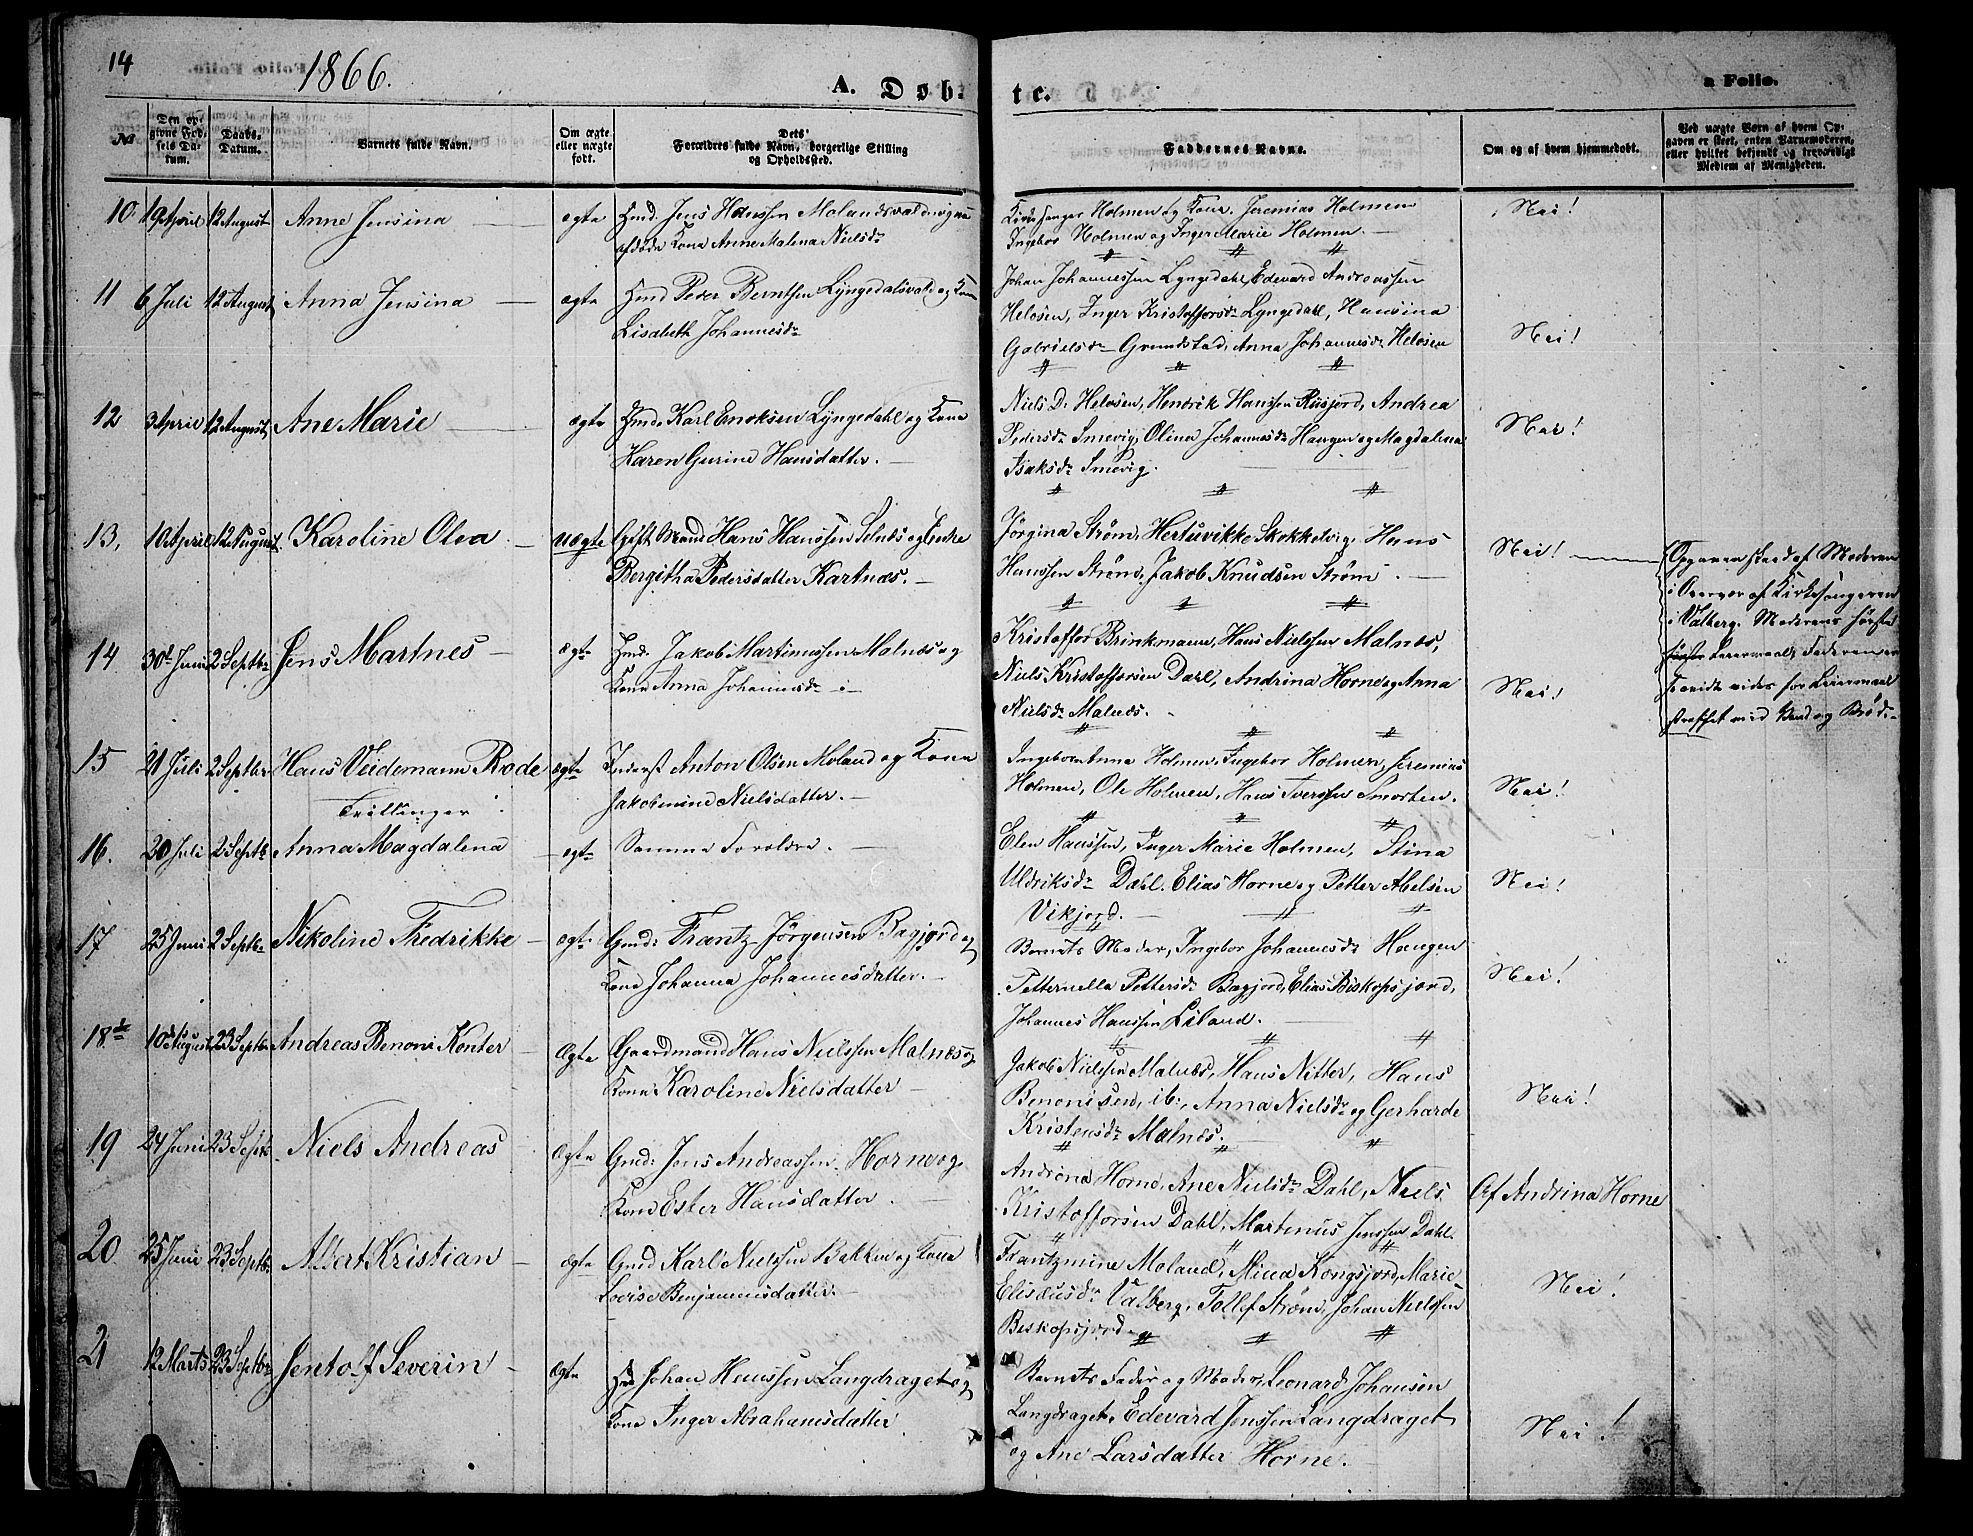 14
1866.
A. Døb-
te.
a Folio.
№
Den opgivne Fødsels Datum.
Daabs-Datum.
Barnets fulde Navn.
Om ægte eller uægte født.
Forældres fulde Navn, Dets' borgerlige Stilling og Opholdssted.
Faddernes Navne.
Om og af hvem hjemmedøbt.
Ved uægte Børn af hvem Opgaven er skeet, enten Barnemoderen, eller hvilket bekjendt og troværdigt Medlem af Menigheden.
10. 19 April 12 August Anne Jensina ægte Hmd. Jens Hanssen Molandsvald og
afdøde Kone Anne Malena Nielsdr
Kirkesanger Holmen og Kone. Jeremias Holmen
Ingebor Holmen og Inger Marie Holmen.
Nei!
11 6 Juli 12 August Anna Jensina ægte Hmd Peder Berntsen Lyngedalsvald og Kone
Lisabeth Johannesdr
Johan Johannessen Lyngedahl, Edevard Andreassen
Heløsen, Inger Kristoffersdr Lyngedahl, Hansina
Gabrielsdr Grundstad, Anna Johannesdr Heløsen
Nei!
12 3 April 12 August Ane Marie ægte Hmd. Karl Enoksen Lyngedahl og Kone
Karen Gurine Hansdatter.
Niels D. Heløsen, Hendrik Hanssen Rusjord, Andrea
Pedersdr Smevig, Olina Johannesdr Haugen og Magdalena
Isaksdr Smevig.
Nei!
13, 10 April 12 August Karoline Olea uægte Gift Mand Hans Hanssen Selnæs og Enke
Bergitha Pedersdatter Kartnæs.
Jørgina Strøm, Hertuvikke Skokkelvig, Hans
Hanssen Strøm, Jakob Knudsen Strøm.
Nei!
Opgaven skeed af Moderen
i Overvær af Kirkesangeren
i Valberg. Moderens første
Leiermaal; Faderen er
forvidt vides for Leiermaal
straffet med Vand og Brød.
14 30te Juni 2 Septbr Jens Martnes ægte Hmd. Jakob Martinussen Malnæs og
Kone Anna Johannesdr
Kristoffer Brinkmann, Hans Nielssen Malnæs,
Niels Kristoffersen Dahl, Andrina Horn og Anna
Nielsdr Malnæs.
Nei!
15 21 Juli 2 Septbr Hans Veidemann Rode ægte Inderst Anton Olsen Moland og Kone
Jakobmine Nielsdatter.
Tvillinger
Ingeborganna Holmen, Ingebor Holmen, Jeremias
Holmen, Ole Holmen, Hans Iverssen Smorten.
Nei!
16. 20 Juli 2 Septbr Anna Magdalena ægte Samme Forældre.
Elen Hanssen, Inger Marie Holmen, Stina
Uldriksdr Dahl. Elias Horn og Petter Abelsen
Vikjord.
Nei!
17 25 Juni 2 Septbr Nikoline Fredrikke ægte Gmd: Frantz Jørgensen Bagjord og
Kone Johanna Johannesdatter.
Barnets Moder, Ingebor Johannesdr Haugen
Petternella Pettersdr Bagjord, Elias Biskopsjord,
Johannes Hanssen Liland.
Nei!
18de 10de August 23 Septbr Andreas Benoni Konter Ægte Gaardmand Hans Nielssen Malnæs og
Kone Karoline Nielsdatter
Jakob Nielssen Malnæs, Hans Nitter, Hans
Benonisen, ib:, Anna Nielsdr og Gerharde
Kristensdr Malnæs.
Nei!
19 24 Juni 23 Septbr Niels Andreas Ægte Gmd: Jens Andreassen Horn og
Kone Ester Hansdatter.
Andrina Horne, Ane Nielsdr Dahl, Niels
Kristoffersen Dahl, Martinus Jenssen Dahl.
Af Andrina Horne
20 25 Juni 23 Septbr Albert Kristian ægte Gmd Karl Nielssen Bakken og Kone
Lovise Benjaminsdatter.
Frantzmine Moland, Mina Kongsjord, Marie
Elisæusdr Valberg, Tollef Strøm, Johan Nielssen
Biskopsjord
Nei!
21 12 Marts 23 Septbr Jentolf Severin ægte Johan Hanssen Langdraget og
Kone Inger Abrahamsdatter
Barnets Fader og Moder, Leonard Johansen
Langdraget, Edevard Jenssen Langdraget
og Ane Larsdatter Horne.
Nei!